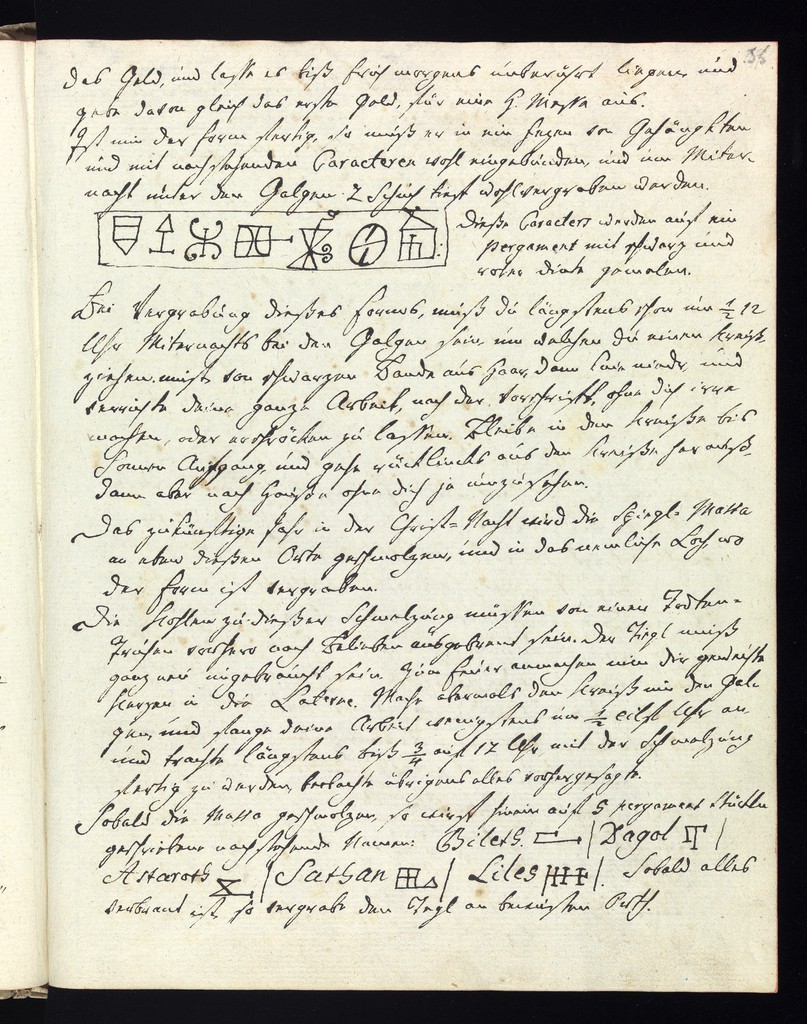 36
das Geld, und lasse es biß früh morgens unberührt liegen, und
gebe davon gleich das erste Geld, für eine H. Messe aus.
Ist nun der form fertig, so muß er in ein fezen von Gehängkten
und mit nachstehenden Caracteren wohl eingebunden, und um Miter-
nacht unter den Galgen 2 Schuh tief wohl vergraben werden.
dieße Caracters werden auf ein
pergament mit schwarz und
rother dinte gemalen.
Bei Vergrabung dießes forms, muß du längstens schon um ½ 12
Uhr Miternachts bei den Galgen sein, um welchen du einen kreiß
ziehen must von schwarzen Bande aus Haar, dann knie nieder und
verrichte deine ganze Arbeit, nach der Vorschrift, ohne dich irre
machen, oder erschröcken zu lassen. Bleibe in dem kreiße bis
Sonnen Aufgang, und gehe rücklinks aus den kreiße herauß,
dann aber nach Hauße ohne dich je umzusehen.
Das zukünftige Jahr in der Christ-Nacht wird die Spiegl-Massa
an eben dießen Orte geschmolzen, und in das nemliche Loch, wo
der form ist vergraben.
Die Kohlen zu dießer Schmelzung müssen von einer Todten-
Truhen vorhero nach Belieben ausgebrent sein. Der Tiegl muß
ganz neu ungebraucht sein. Zum feuer anmachen nim die geweihte
kerzen in die Laterne. Mache abermals den kreiß um den Gal-
gen, und fange deine Arbeit wenigstens um ½ eilf Uhr an
und trachte längstens biß ¾ auf 12 Uhr mit der Schmelzung
fertig zu werden, beobachte übrigens alles vorhergesagte.
Sobald die Massa geschmolzen, so wirf hinein auf 5 pergament stückln
geschriebene nachstehende Namen: Bileth. | Dagol |
Astaroth | Sathan | Liles |. Sobald alles
verbrant ist, so vergrabe den Tiegl an bewusten Orth.